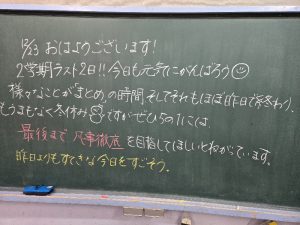 12/23 おはようございます!
2学期ラスト2日!!今日も元気にがんばろう
様々なことが"まとめ"の時間、そしてそれもほぼ昨日で終わり。
もうまもなく冬休み ですが、ぜひ5の1には、
最後まで 凡事徹底 を目指してほしいとねがっています。
昨日よりもすてきな今日をすごそう。